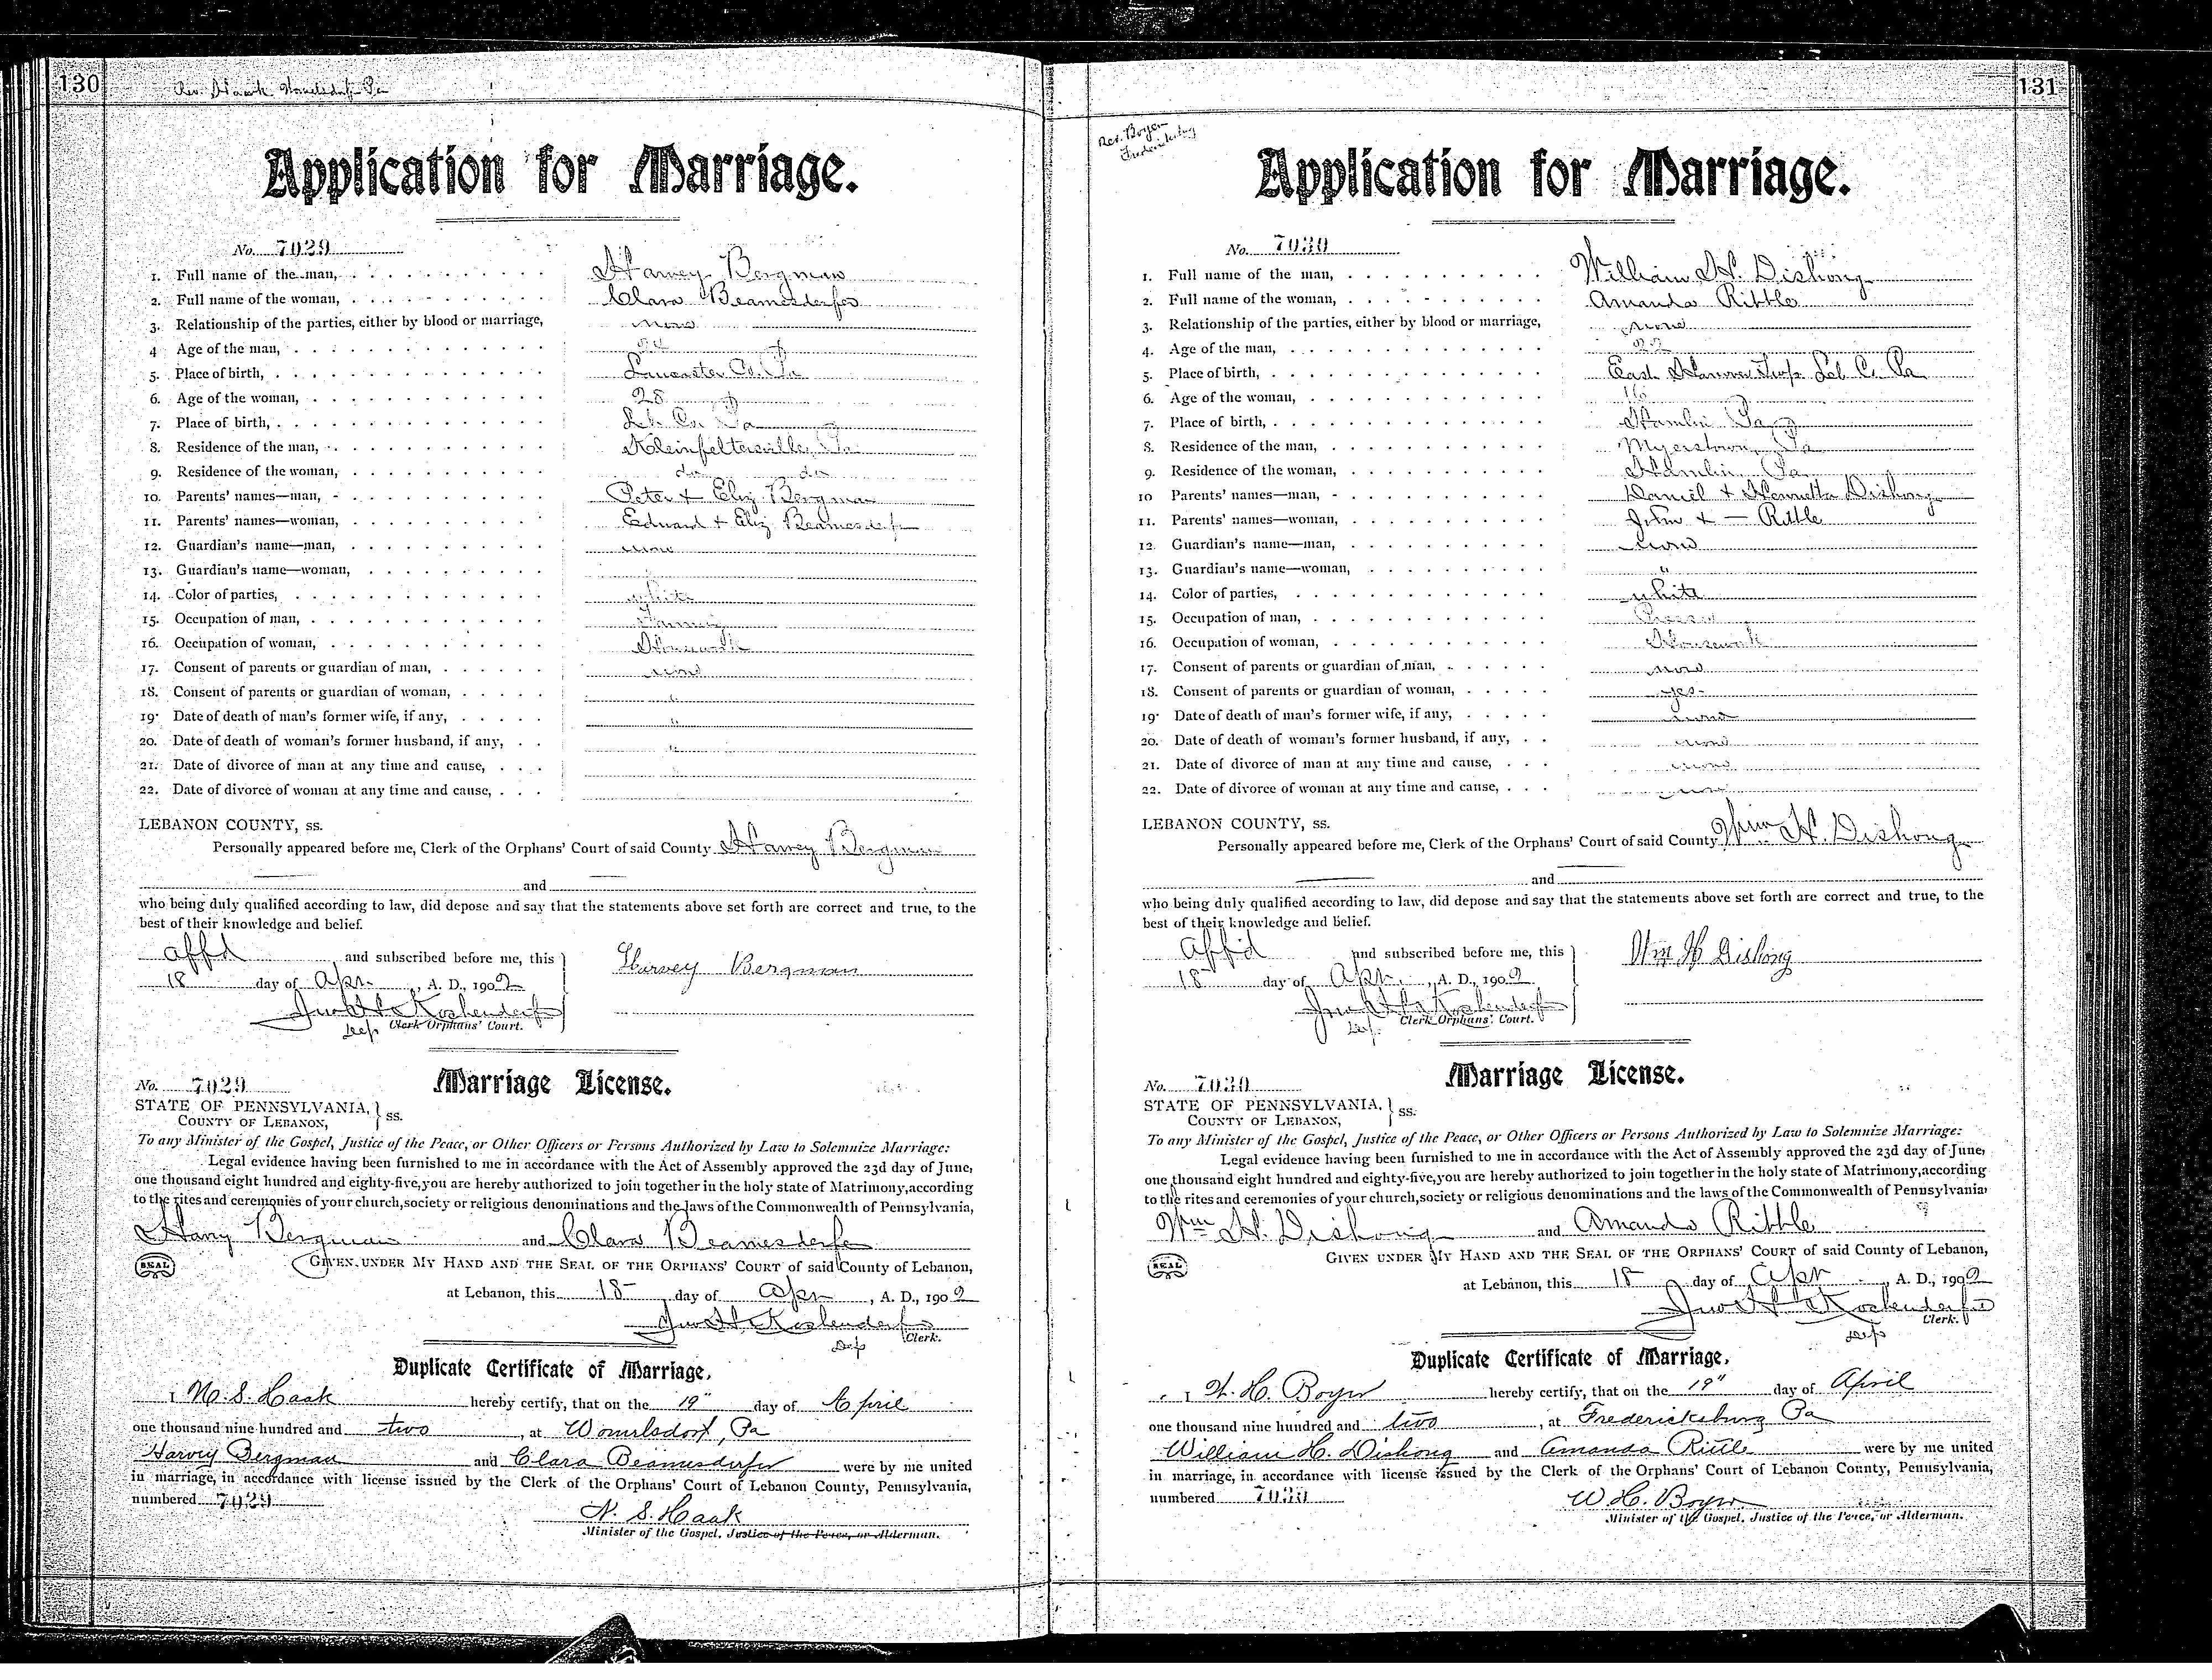 130
Rev. Haak Womelsdorf Pa
Application for Marriage.
No. 7029
1. Full name of the man, Harvey Bergman
2. Full name of the woman, Clara Beamesderfer
3. Relationship of the parties, either by blood or marriage, none
4 Age of the man,
5. Place of birth, Lancaster Co. Pa
6. Age of the woman, 28
7. Place of birth, Leb. Co. Pa
8. Residence of the man, Kleinfeltersville, Pa
9. Residence of the woman, do do
10. Parents' names—man, Peter + Eliz Bergman
11. Parents' names—woman, Edward + Eliz Beamesderfer
12. Guardian's name—man, none
13. Guardian's name—woman, "
14. Color of parties, white
15. Occupation of man,
16. Occupation of woman, Housework
17. Consent of parents or guardian of man, none
18. Consent of parents or guardian of woman, "
19. Date of death of man's former wife, if any, "
20. Date of death of woman's former husband, if any, "
21. Date of divorce of man at any time and cause, "
22. Date of divorce of woman at any time and cause,
LEBANON COUNTY, ss.
Personally appeared before me, Clerk of the Orphans' Court of said County Harvey Bergman
and
who being duly qualified according to law, did depose and say that the statements above set forth are correct and true, to the
best of their knowledge and belief.
affd and subscribed before me, this
18 day of Apr. , A. D., 1902
Harvey Bergman
Jno H Kochenderfer
Dep Clerk Orphans' Court.
No. 7029 Marriage License.
STATE OF PENNSYLVANIA, } ss.
COUNTY OF LEBANON,
To any Minister of the Gospel, Justice of the Peace, or Other Officers or Persons Authorized by Law to Solemnize Marriage:
Legal evidence having been furnished to me in accordance with the Act of Assembly approved the 23d day of June,
one thousand eight hundred and eighty-five, you are hereby authorized to join together in the holy state of Matrimony, according
to the rites and ceremonies of your church, society or religious denominations and the laws of the Commonwealth of Pennsylvania,
Harry Bergman and Clara Beamesderfer
SEAL GIVEN UNDER MY HAND AND THE SEAL OF THE ORPHANS' COURT of said County of Lebanon,
at Lebanon, this 18 day of Apr , A. D., 1902
Jno H Kochenderfer
Dep Clerk.
Duplicate Certificate of Marriage.
I N. S. Haak hereby certify, that on the 19" day of April
one thousand nine hundred and two , at Womelsdorf, Pa
Harvey Bergman and Clara Beamesderfer were by me united
in marriage, in accordance with license issued by the Clerk of the Orphans' Court of Lebanon County, Pennsylvania,
numbered 7029
N. S. Haak
Minister of the Gospel, Justice of the Peace, or Alderman.
131
Rev. Boyer
Fredericksburg
Application for Marriage.
No. 7030
1. Full name of the man, William H. Dishong
2. Full name of the woman, Amanda Rittle
3. Relationship of the parties, either by blood or marriage, none
4. Age of the man, 22
5. Place of birth, East Hanover Twp. Leb Co. Pa
6. Age of the woman, 16
7. Place of birth, Hamlin Pa
8. Residence of the man, Myerstown, Pa
9. Residence of the woman, Hamlin Pa
10 Parents' names—man, Daniel + Henrietta Dishong
11. Parents' names—woman, John + — Rittle
12. Guardian's name—man, none
13. Guardian's name—woman, "
14. Color of parties, white
15. Occupation of man,
16. Occupation of woman, Housework
17. Consent of parents or guardian of man, none
18. Consent of parents or guardian of woman, yes
19. Date of death of man's former wife, if any, none
20. Date of death of woman's former husband, if any, none
21. Date of divorce of man at any time and cause, none
22. Date of divorce of woman at any time and cause, none
LEBANON COUNTY, ss.
Personally appeared before me, Clerk of the Orphans' Court of said County Wm H. Dishong
and
who being duly qualified according to law, did depose and say that the statements above set forth are correct and true, to the
best of their knowledge and belief.
Aff'd and subscribed before me, this
18 day of Apr. , A. D., 1902
Wm H Dishong
Jno H Kochenderfer
Dep. Clerk Orphans' Court.
No. 7030 Marriage License.
STATE OF PENNSYLVANIA, } ss.
COUNTY OF LEBANON,
To any Minister of the Gospel, Justice of the Peace, or Other Officers or Persons Authorized by Law to Solemnize Marriage:
Legal evidence having been furnished to me in accordance with the Act of Assembly approved the 23d day of June,
one thousand eight hundred and eighty-five, you are hereby authorized to join together in the holy state of Matrimony, according
to the rites and ceremonies of your church, society or religious denominations and the laws of the Commonwealth of Pennsylvania
Wm H. Dishong and Amanda Rittle
SEAL GIVEN UNDER MY HAND AND THE SEAL OF THE ORPHANS' COURT of said County of Lebanon,
at Lebanon, this 18 day of Apr , A. D., 1902
Jno H Kochenderfer
Dep Clerk.
Duplicate Certificate of Marriage.
I W. H. Boyer hereby certify, that on the 19" day of April
one thousand nine hundred and two , at Fredericksburg Pa
William H. Dishong and Amanda Rittle were by me united
in marriage, in accordance with license issued by the Clerk of the Orphans' Court of Lebanon County, Pennsylvania,
numbered 7030
W H. Boyer
Minister of the Gospel, Justice of the Peace, or Alderman.